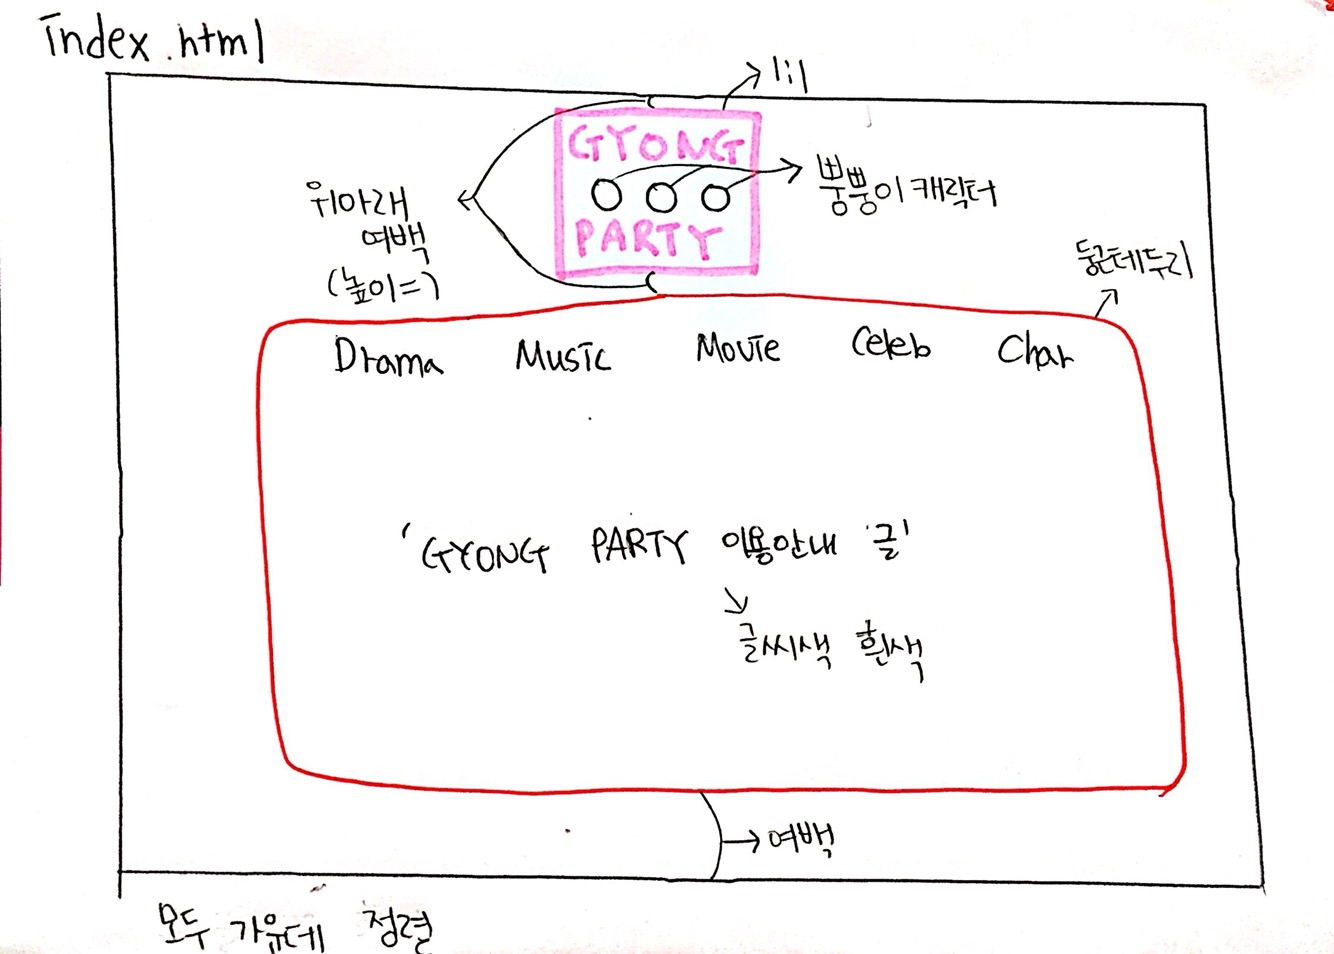 index.html
1:1
GYONG
PARTY
뿡뿡이 캐릭터
위아래
여백
(높이=)
둥근테두리
Drama Music Movie Celeb Char
'GYONG PARTY 이용안내 글'
글씨색 흰색
여백
모두 가운데 정렬